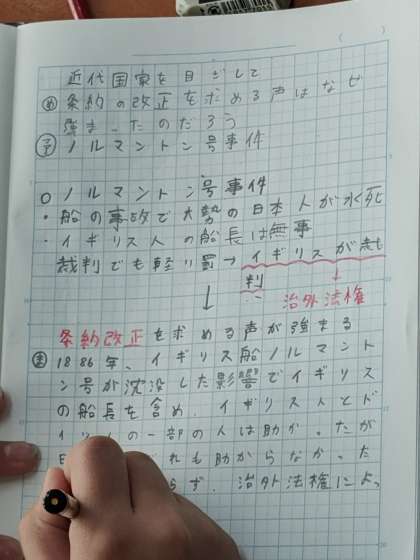 近代国家を目ざして
め 条約の改正を求める声はなぜ
強まったのだろう
予 ノルマントン号事件
○ノルマントン号事件
・船の事故で大勢の日本人が水死
・イギリス人の船長は無事
裁判でも軽い罪→イギリスが裁
判
治外法権
↓
条約改正を求める声が強まる
ま 1886年、イギリス船ノルマント
ン号が沈没した影響でイギリス
の船長を含め、イギリス人とド
イツ人の一部の人は助かったが
れも助からなかった
らず、治外法権によっ